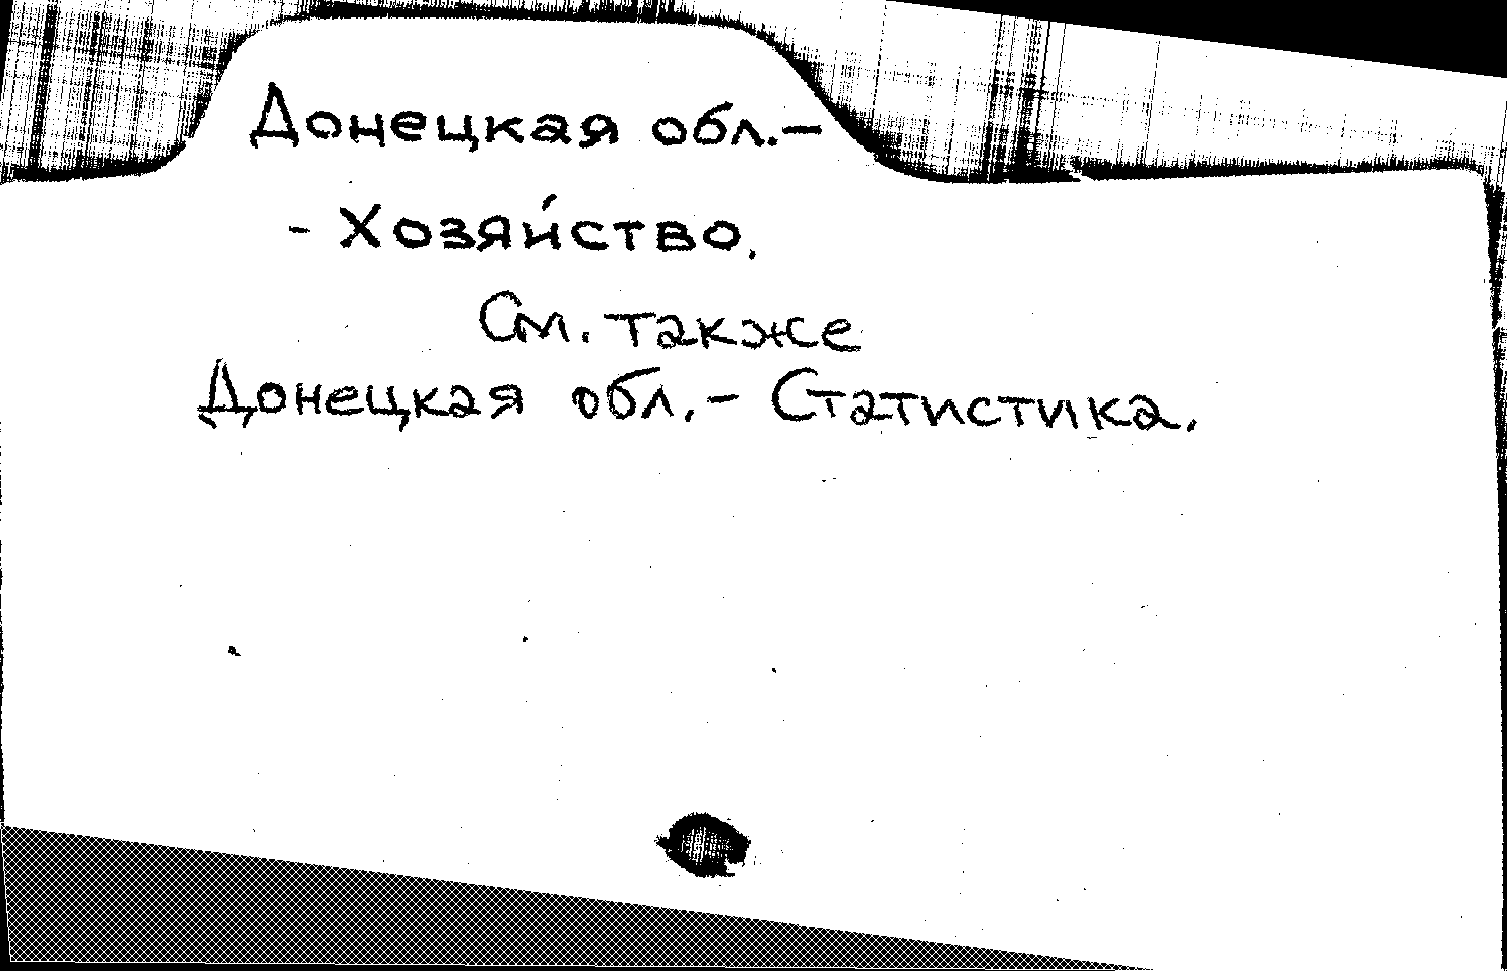 Донецкая обл.–
- Хозяйство.
См. также
Донецкая обл.– Статистика.